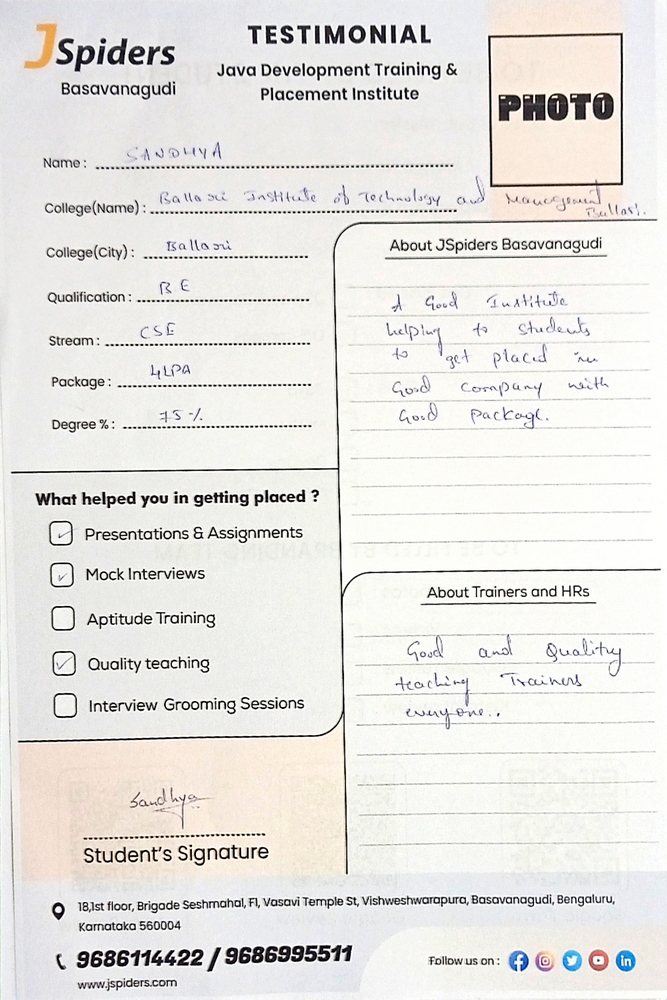 JSpiders
Basavanagudi
TESTIMONIAL
Java Development Training &
Placement Institute
PHOTO
Name : SANDHYA
College(Name) : Ballari Institute of Technology and Management
Ballari.
College(City) : Ballari
Qualification : BE
Stream : CSE
Package : 4LPA
Degree % : 75%
What helped you in getting placed ?
Presentations & Assignments
Mock Interviews
Aptitude Training
Quality teaching
Interview Grooming Sessions
Sandhya
Student's Signature
About JSpiders Basavanagudi
A Good Institute
helping to students
to get placed in
Good company with
Good Package.
About Trainers and HRs
Good and Quality
teaching Trainers
everyone..
18,1st floor, Brigade Seshmahal, F1, Vasavi Temple St, Vishweshwarapura, Basavanagudi, Bengaluru,
Karnataka 560004
9686114422 / 9686995511
www.jspiders.com
Follow us on :